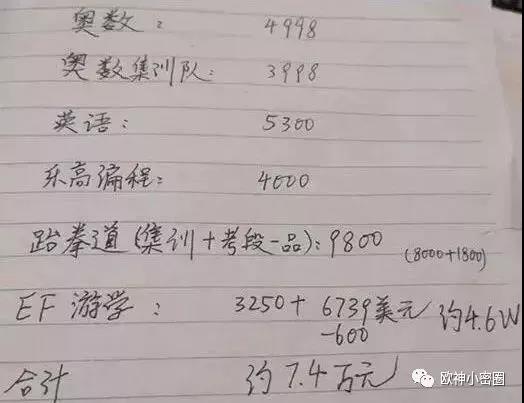 奥数: 4998
奥数集训队: 3998
英语: 5300
乐高编程: 4000
跆拳道(集训+考段一品): 9800 (8000+1800)
EF 游学: 3250+ 6739美元 约4.6W
-600
合计 约7.4万元
欧神小密圈